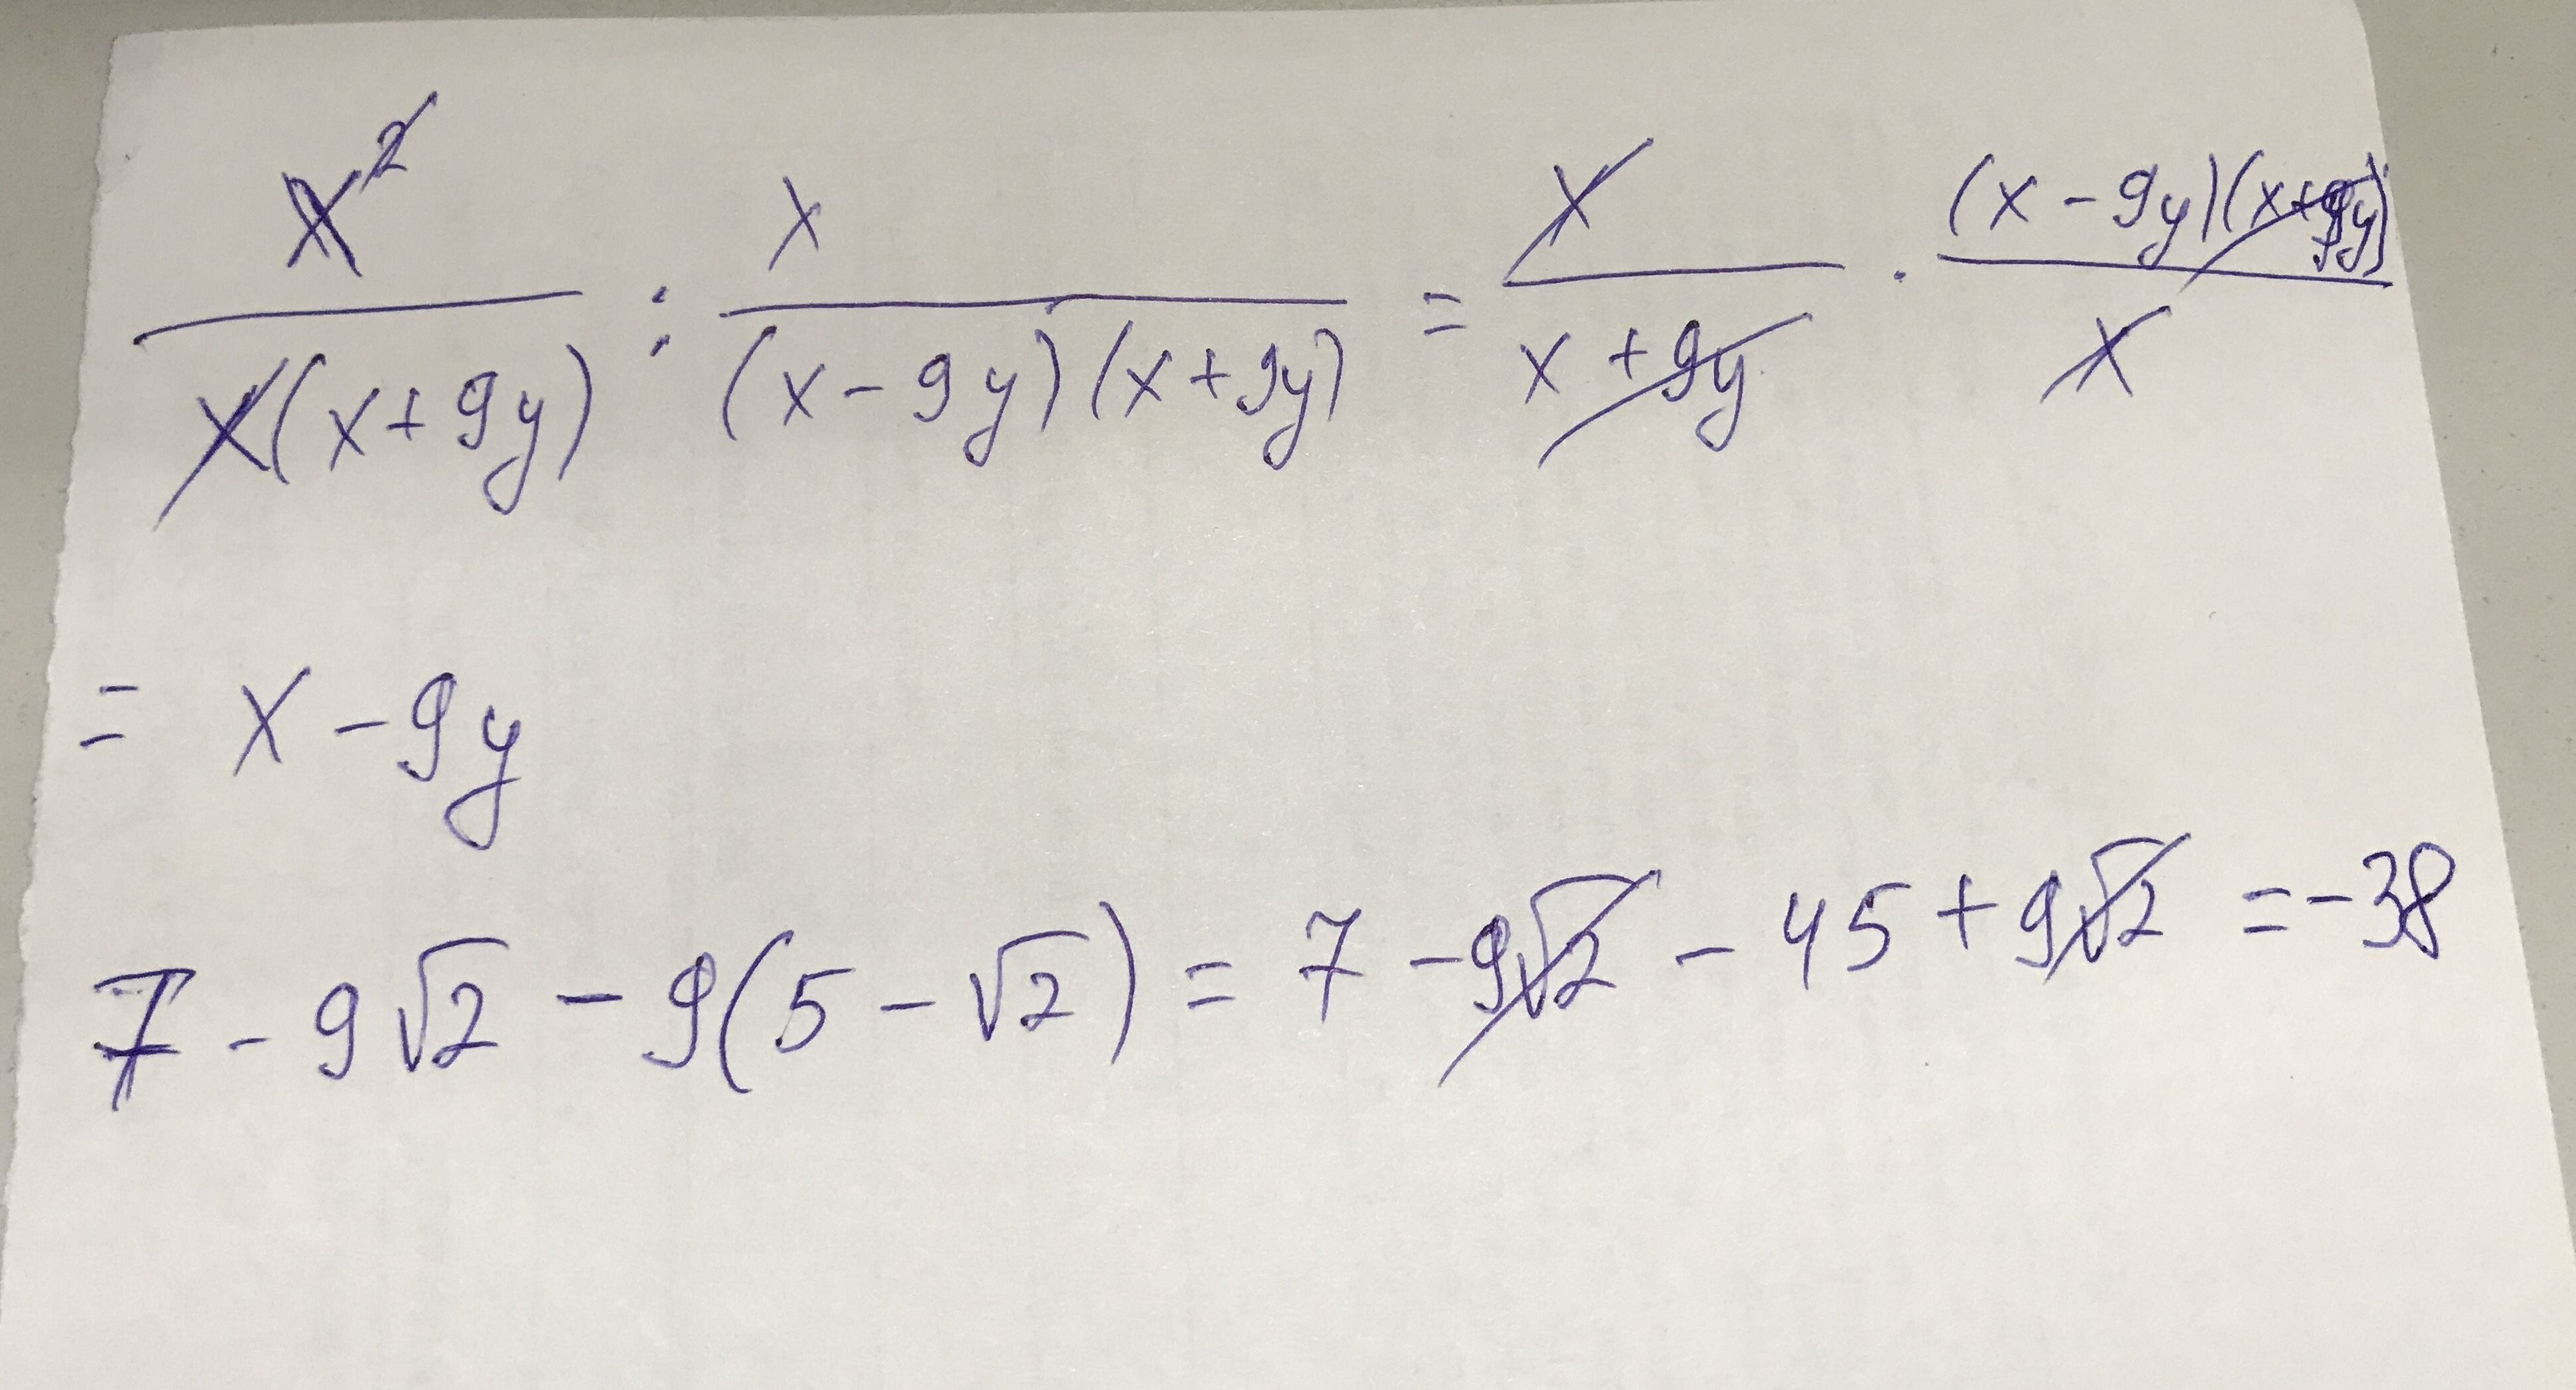 x²/x(x+9y) : x/(x-9y)(x+9y) = x/x+9y · (x-9y)(x+9y)/x
= x-9y
7-9√2-9(5-√2) = 7-9√2-45+9√2 = -38